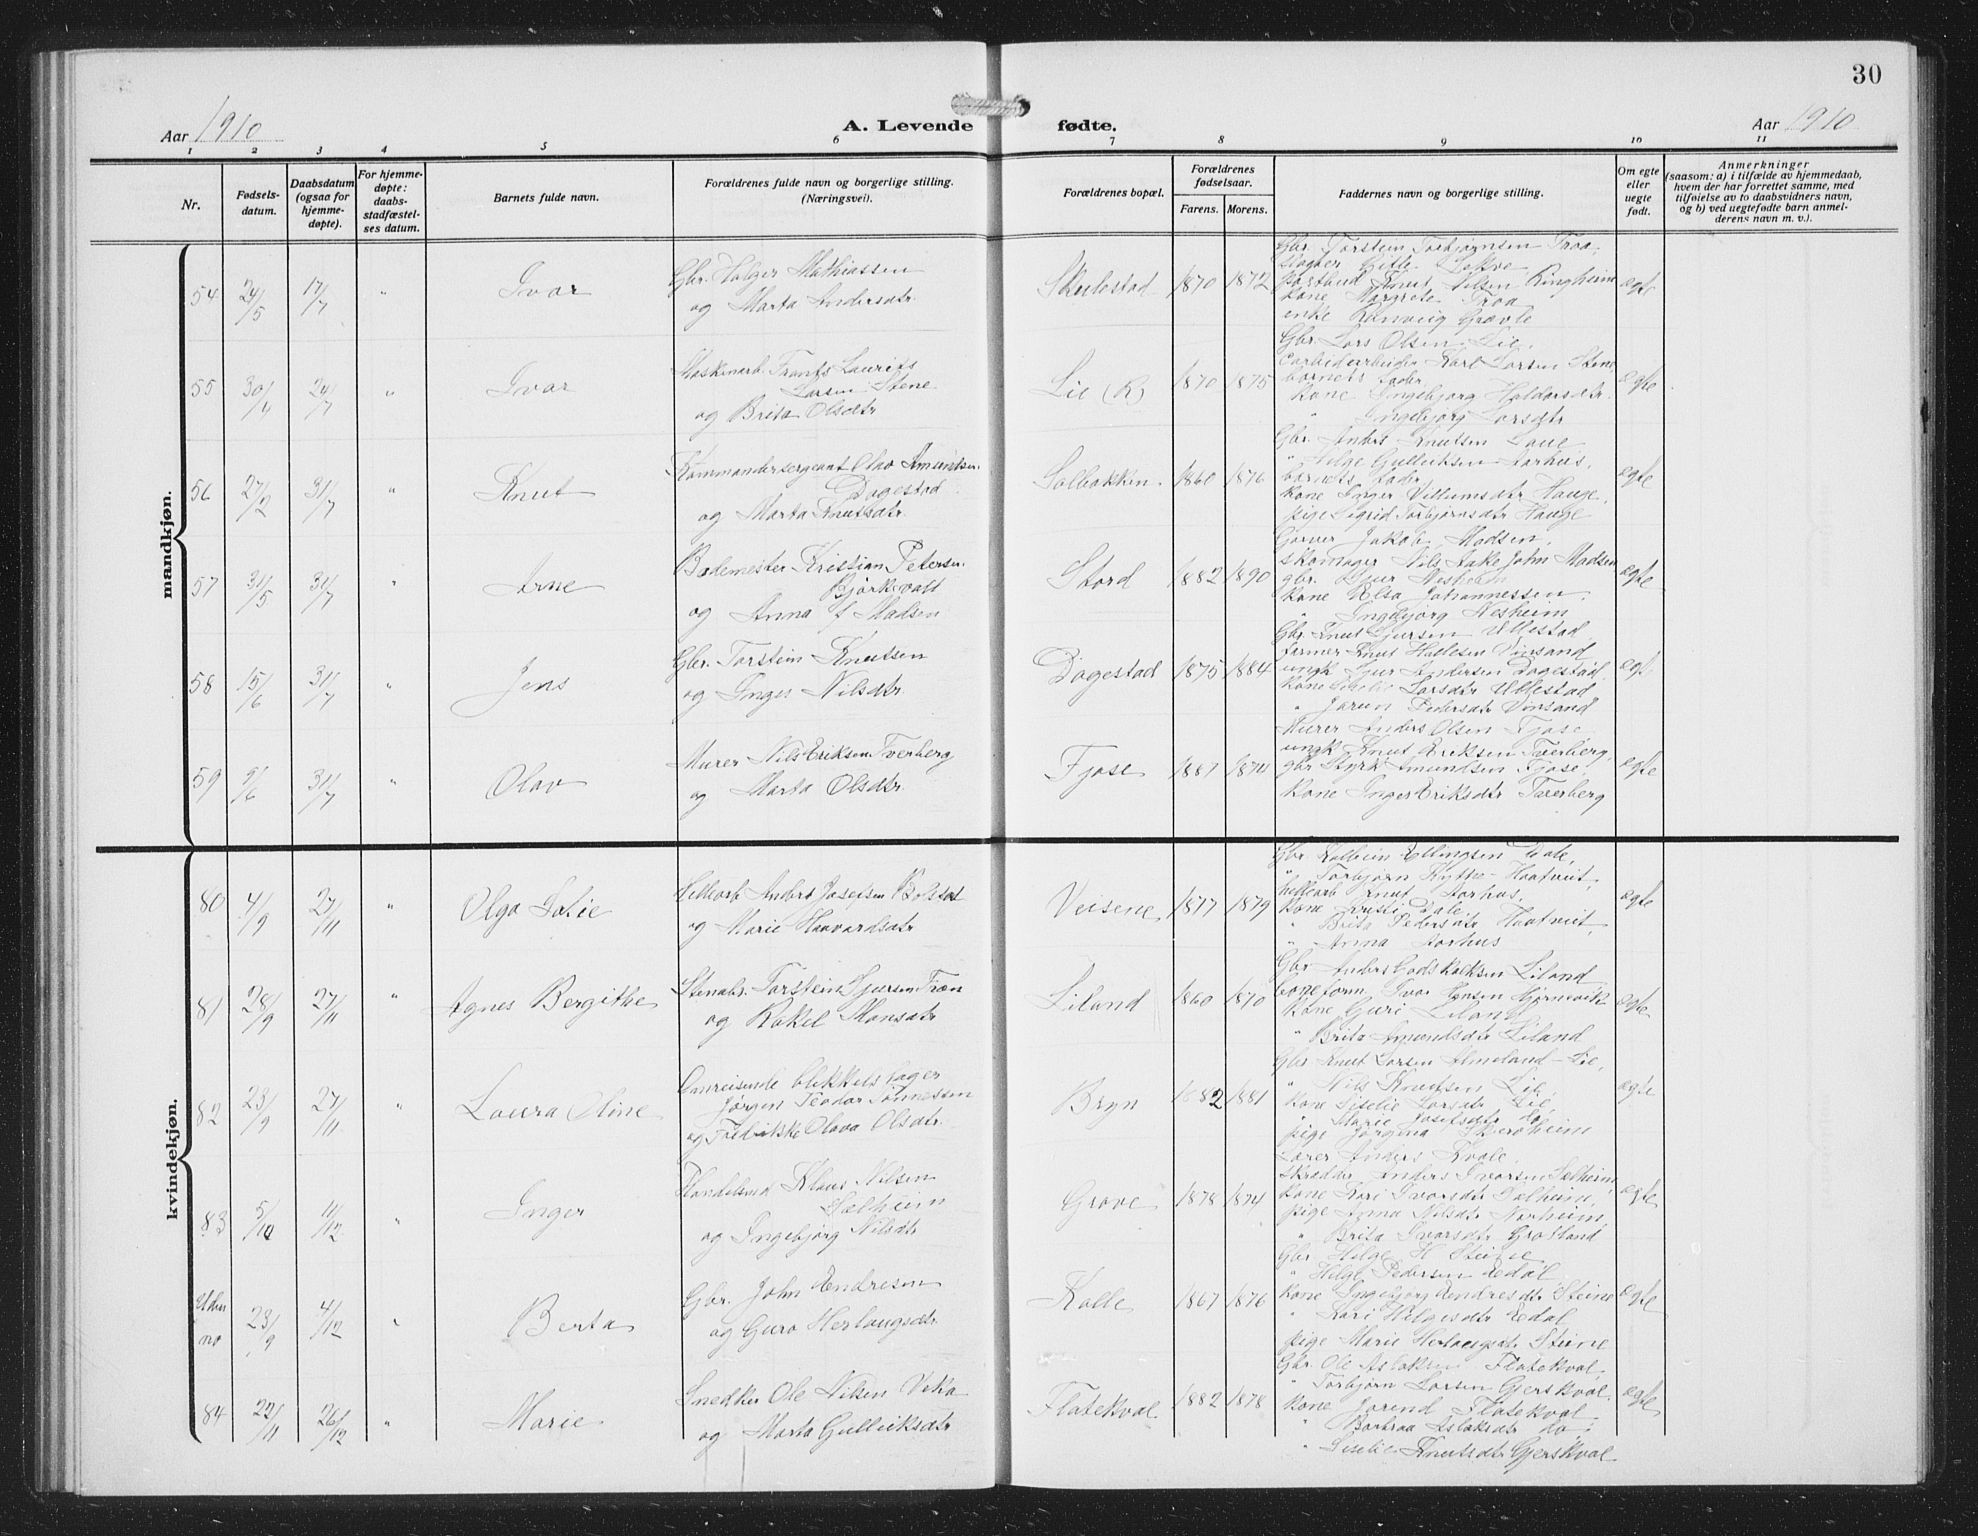 30
Aar 1910
A. Levende fødte.
Aar 1910
1 2 3 4 5 6 7 8 9 10 11
Nr.
Fødsels-
datum.
Daabsdatum
(ogsaa for
hjemme-
døpte).
For hjemme-
døpte:
daabs-
stadfæstel-
ses datum.
Barnets fulde navn.
Forældrenes fulde navn og borgerlige stilling.
(Næringsvei).
Forældrenes bopæl.
Forældrenes
fødselsaar.
Farens. Morens.
Faddernes navn og borgerlige stilling.
Om egte
eller
uegte
født.
Anmerkninger
(saasom: a) i tilfælde av hjemmedaab,
hvem der har forrettet samme, med
tilføielse av to daabsvidners navn,
og b) ved uegtefødte barn anmel-
derens navn m. v.).
mandkjøn.
54 24/5 17/7 " Ivar
Gbr. Holger Mathiassen
og Marta Andersdtr.
Skulestad 1870 1872
Gbr. Torstein Torbjørnsen Troa,
Gitle Lekve
Knut Nilsen Ringheim
kone Margrete Troa
enke Ranveig Grovle
egte
55 30/4 24/7 " Ivar
Maskenarb. Frants Laurits
Larsen Stene
og Brita Olsdtr
Lie (R) 1870 1875
Gbr. Lars Olsen Lie,
Carbidarbeider Karl Larsen Stene
barnets fader
kone Ingebjørg Haldorsdtr.
" Ingebjørg Larsdtr
egte
56 27/2 31/7 " Knut
Kommandersergeant Olav Amundsen
Dagestad
og Marta Knutsdtr.
Solbakken. 1860 1876
Gbr. Anders Knutsen Laue
" Helge Gulleiksen Aarhus,
barnets fader
kone Inger Villumsdtr Hauge,
pige Sigrid Torbjørnsdtr Hauge
egte
57 31/5 31/7 " Arne
Bademester Kristian Petersen
Bjørkevalt
og Anna J Madsen
Stord 1882 1890
Garver Jakob Madsen,
skomager Nils Aake John Madsen
gbr. Sjur Nesheim
kone Elsa Johannessen,
" Ingebjørg Nesheim
egte
58 15/6 31/7 " Jens
Gbr. Torstein Knutsen
og Inger Nilsdtr.
Dagestad 1875 1884
Gbr. Knut Sjursen Ullestad
farmer Knut Vinsand
ungk. Sjur Andersen Dagestad,
kone Larsdtr Ullestad
" Jorun Pedersdtr Vinsand
egte
59 9/6 31/7 " Olav
Murer Nils Eriksen Tverberg
og Marta Olsdtr.
Fjose 1881 1874
Murer Anders Olsen Fjose
ungk. Knut Eriksen Tverberg,
gbr Styrk Amundsen Fjose,
kone Inger Eriksdtr Tverberg
egte
kvindekjøn.
80 4/9 27/11 " Olga Sofie
Anders Josefsen Bolstad
og Marie Haavardsdtr
Veisene 1877 1879
Gbr Kolbein Ellingsen Dale,
" Torbjørn Kytte-Haatveit,
Knut Aarhus,
kone Kristi Dale
" Brita Pedersdtr Haatveit,
" Anna Aarhus
egte
81 28/9 27/11 " Agnes Bergithe
Stenarb. Torstein Sjursen Træn
og Rakel Monsdtr
Liland 1860 1870
Gbr Anders Godskalksen Liland,
baneform. Ivar Hansen Hjørnevik
kone Guri Liland
" Brita Amundsdtr Liland
egte
82 23/9 27/11 " Laura Oline
Omreisende blikkenslager
Jørgen Teodor Tønnessen
og Fredrikke Olava Olsdtr.
Bryn 1882 1881
Gbr Knut Larsen Almeland-Lie,
" Nils Knutsen Lie
kone Siselie Larsdtr Lie,
" Marie Josefsdtr do,
pige Jørgina Skerdheim
egte
83 5/10 11/12 " Inger
Handelsmd Klaus Nilsen
Sælheim
og Ingebjørg Nilsdtr
Grove 1878 1874
Lærer Anders Kvale,
skrædder Anders Ivarsen Sælheim,
kone Kari Ivarsdtr Sælheim,
pige Anna Nilsdtr Norheim,
" Brita Ivarsdtr Grotland
egte
Uden
no 23/9 4/12 " Berta
Gbr. John Endresen
og Guro Herlaugsdtr.
Kolle 1867 1876
Gbr Helge H Steine
" Helge Pedersen Edal
kone Ingebjørg Endresdtr Steine
" Kari Helgesdtr Edal
pige Marie Herlaugsdtr Steine
egte
84 22/11 26/12 " Marie
Snedker Ole Nilsen Vika
og Marta Gulleiksdtr
Flatekval 1882 1878
Gbr. Ole Aslaksen Flatekval,
" Torbjørn Larsen Gjerskval
kone Jorend Flatekval
" Barbraa Aslaksdtr do,
" Siselie Knutsdtr Gjerskval
egte